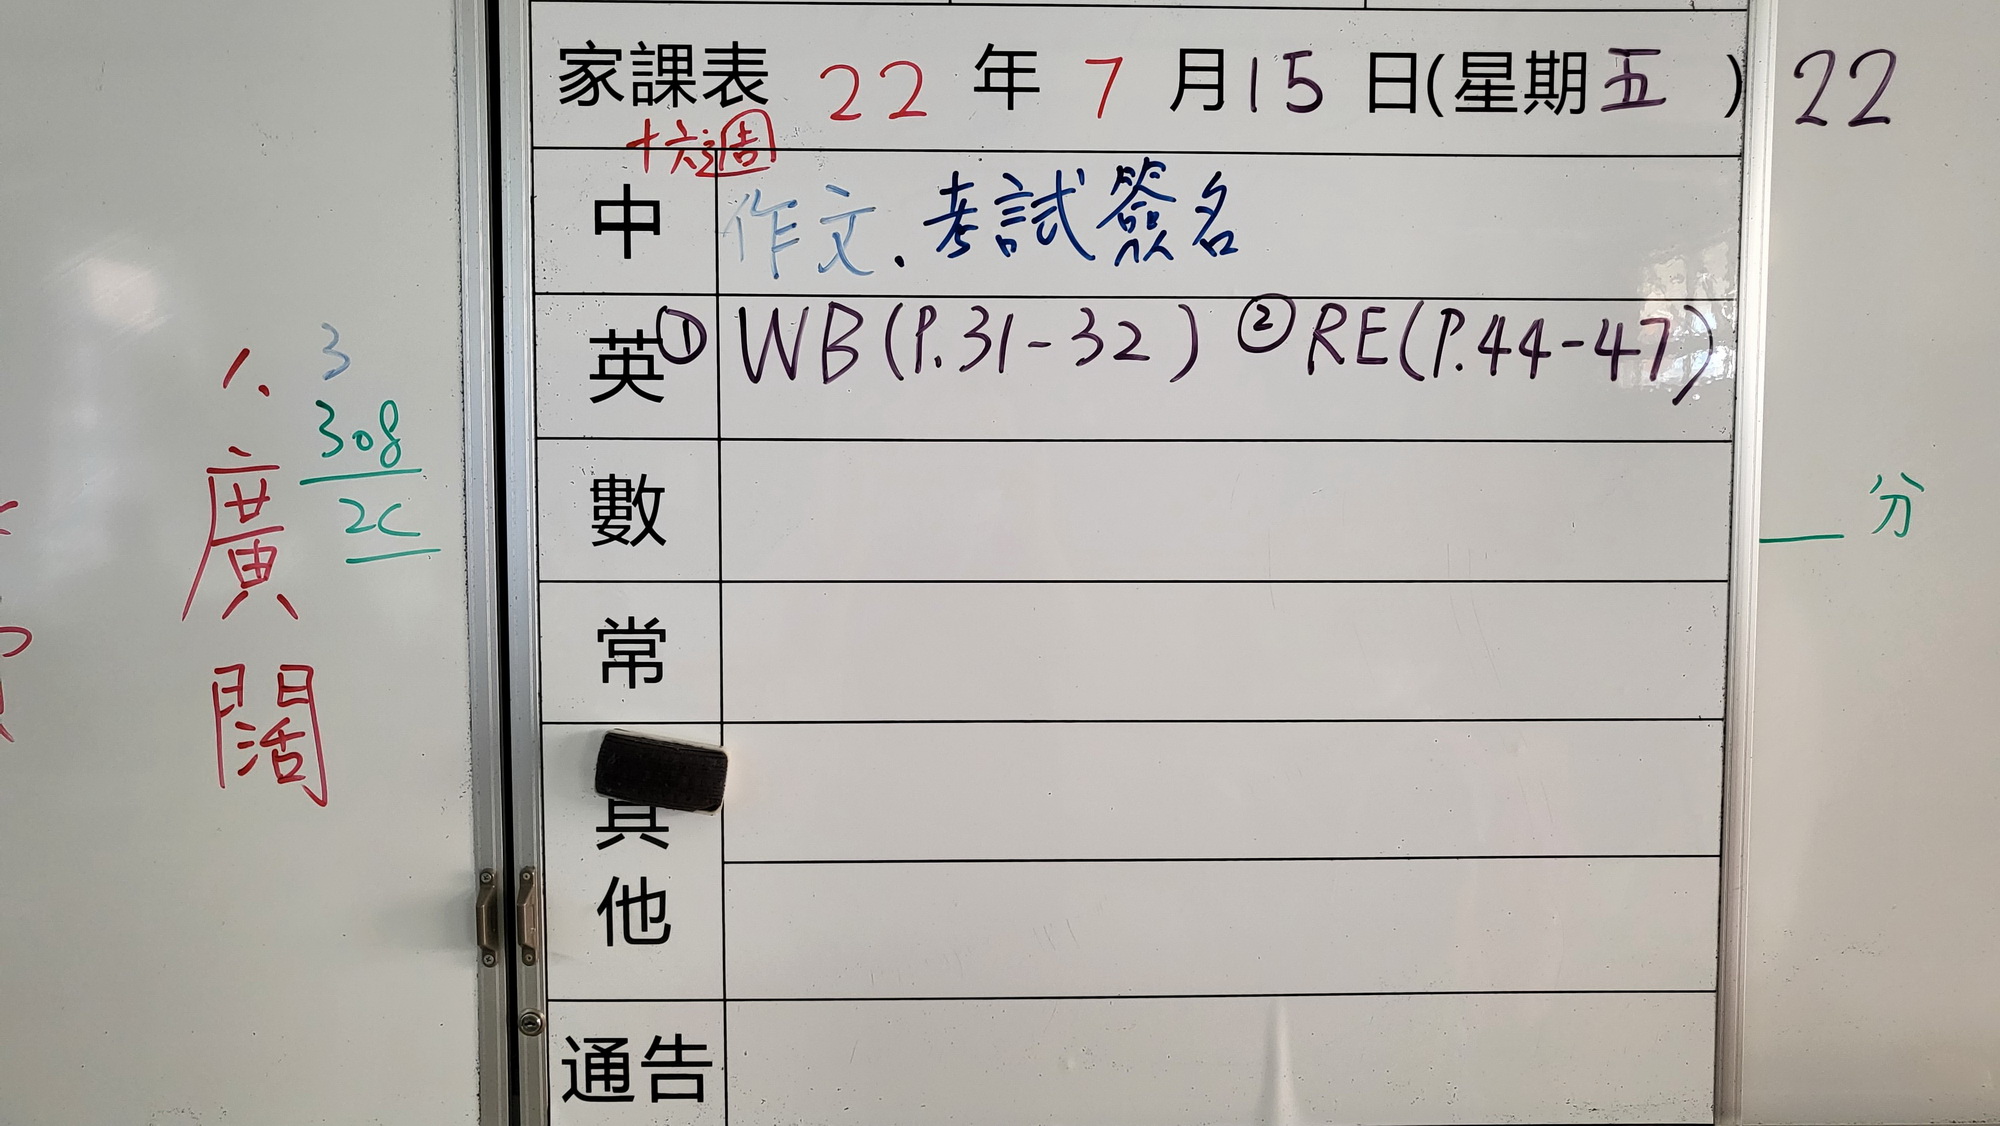 家課表 22 年 7 月 15 日(星期 五 ) 22
十六週
中 作文.考試簽名
英 ① WB(P.31-32) ② RE(P.44-47)
數
常
其他
通告
1.
廣闊
3
308
2C
分